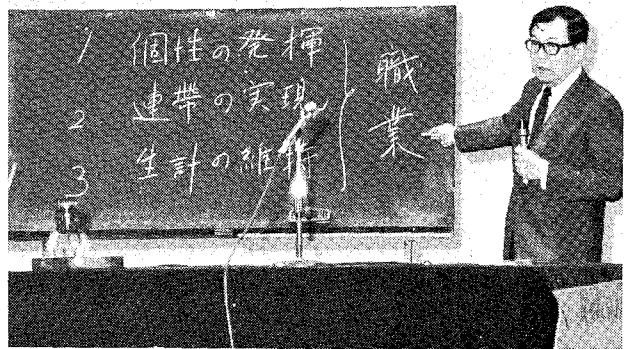 1 個性の発揮
2 連帯の実現
3 生計の維持
職業